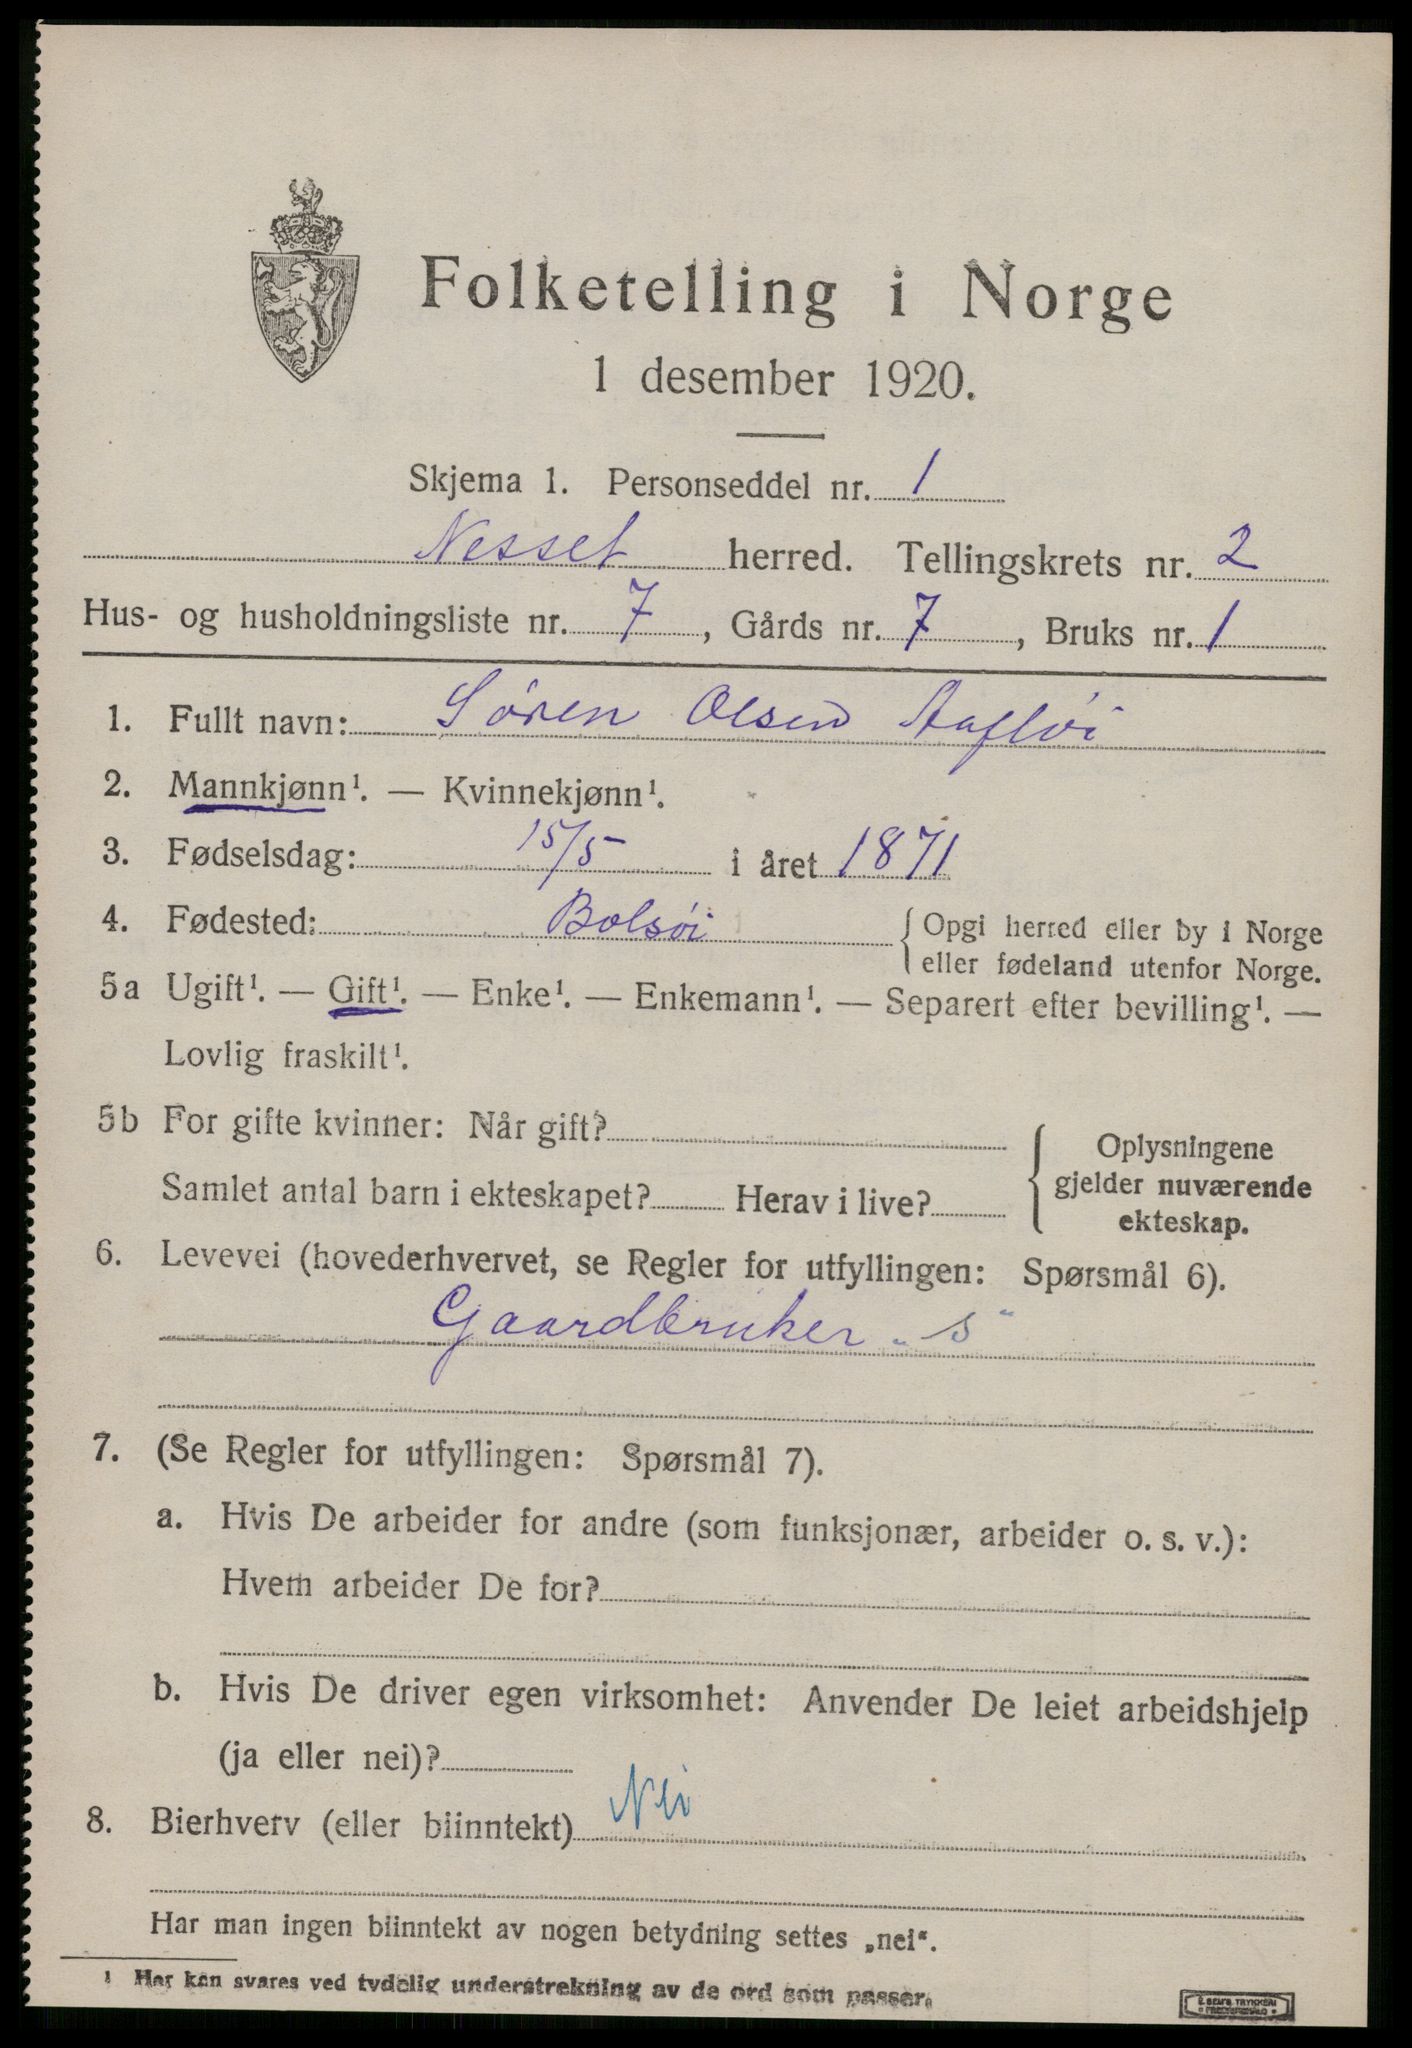 Folketelling i Norge
1 desember 1920.
Skjema 1. Personseddel nr. 1
Nesset herred. Tellingskrets nr. 2
Hus- og husholdningsliste nr. 7, Gårds nr. 7, Bruks nr. 1
1. Fullt navn: Søren Olsen Aafløi
2. Mannkjønn¹. — Kvinnekjønn¹.
3. Fødselsdag: 15/5 i året 1871
4. Fødested: Bolsøi { Opgi herred eller by i Norge
eller fødeland utenfor Norge.
5a Ugift¹. — Gift¹. — Enke¹. — Enkemann¹. — Separert efter bevilling¹. —
Lovlig fraskilt¹.
5b For gifte kvinner: Når gift?
Samlet antal barn i ekteskapet? Herav i live?
{ Oplysningene
gjelder nuværende
ekteskap.
6. Levevei (hovederhvervet, se Regler for utfyllingen: Spørsmål 6).
Gaardbruker „s“
7. (Se Regler for utfyllingen: Spørsmål 7).
a. Hvis De arbeider for andre (som funksjonær, arbeider o. s. v.):
Hvem arbeider De for?
b. Hvis De driver egen virksomhet: Anvender De leiet arbeidshjelp
(ja eller nei)?
8. Bierhverv (eller biinntekt) Nei
Har man ingen biinntekt av nogen betydning settes „nei“.
¹ Her kan svares ved tydelig understrekning av de ord som passer.